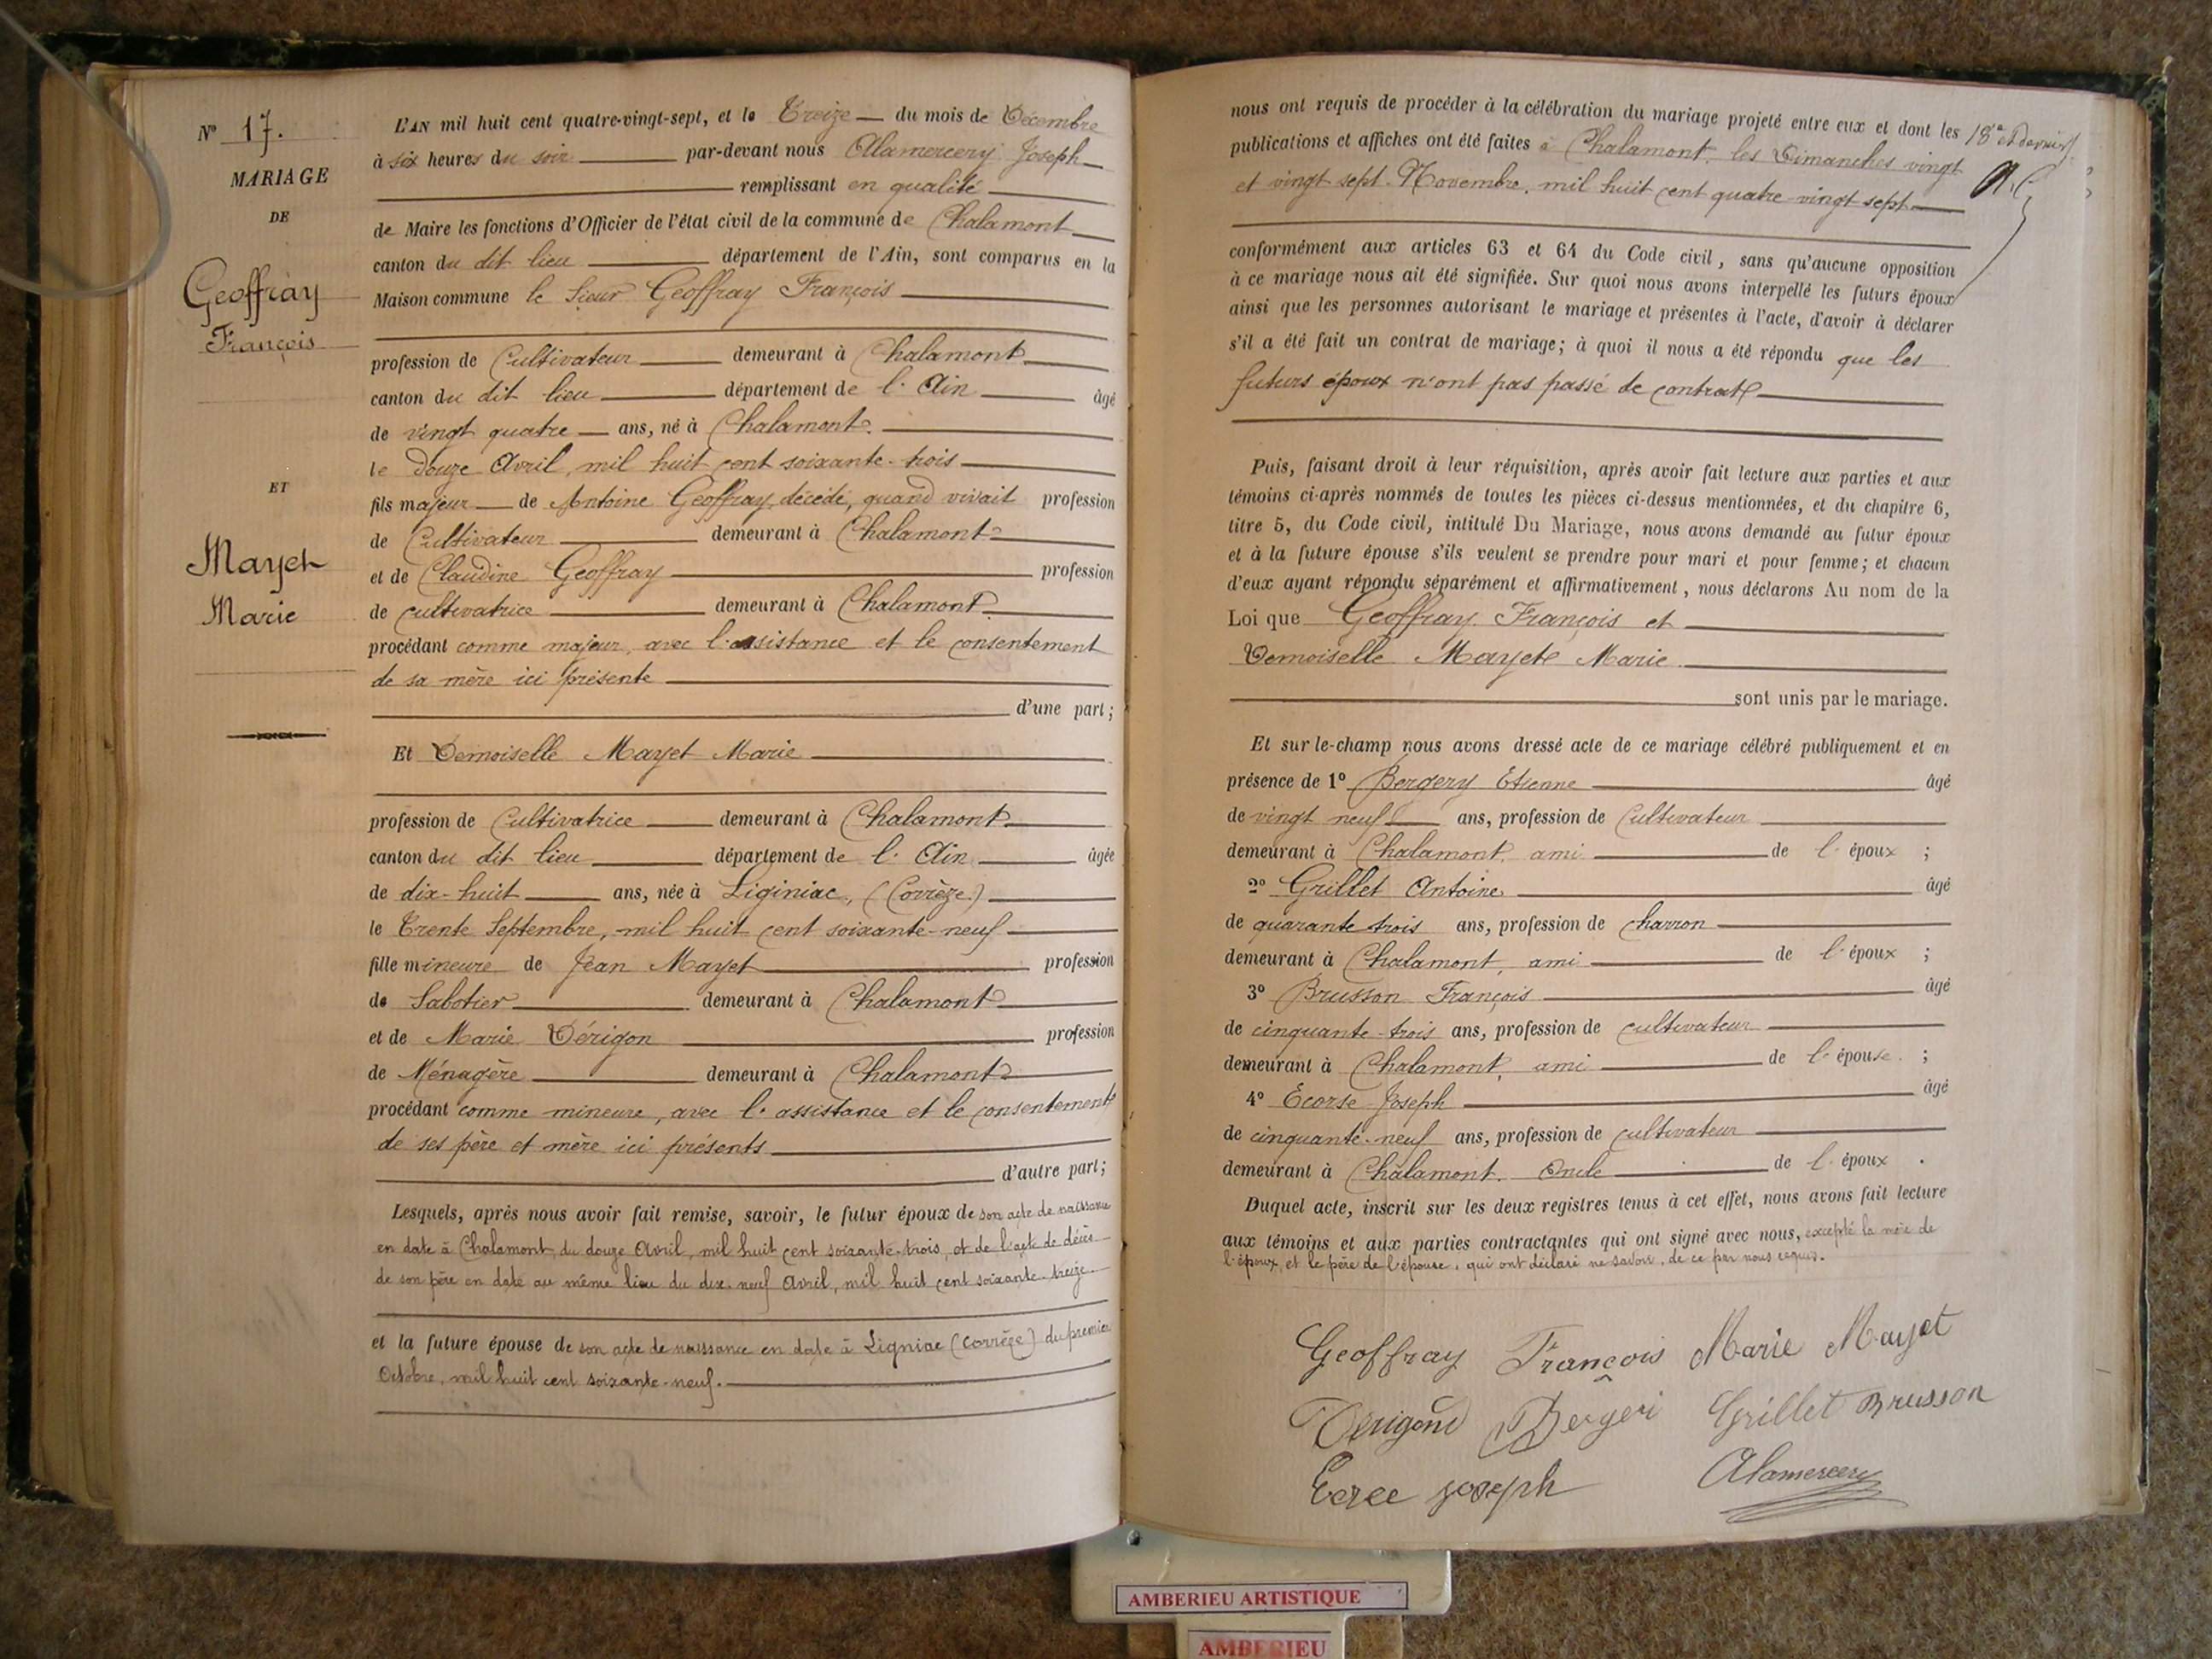 N° 17.
MARIAGE
DE
Geoffray
François
ET
Mayet
Marie
L'AN mil huit cent quatre-vingt-sept, et le Treize du mois de Décembre
à six heures du soir par-devant nous Alamercery Joseph
remplissant en qualité
de Maire les fonctions d'Officier de l'état civil de la commune de Chalamont
canton du dit lieu département de l'Ain, sont comparus en la
Maison commune le Sieur Geoffray François
profession de Cultivateur demeurant à Chalamont
canton du dit lieu département de l'Ain âgé
de vingt quatre ans, né à Chalamont.
le douze Avril, mil huit cent soixante-trois
fils majeur de Antoine Geoffray, décédé, quand vivait profession
de Cultivateur demeurant à Chalamont
et de Claudine Geoffray profession
de cultivatrice demeurant à Chalamont
procédant comme majeur, avec l'assistance et le consentement
de sa mère ici présente
d'une part;
Et Demoiselle Mayet Marie
profession de Cultivatrice demeurant à Chalamont
canton du dit lieu département de l'Ain âgée
de dix-huit ans, née à Liginiac, (Corrèze)
le Trente Septembre, mil huit cent soixante-neuf
fille mineure de Jean Mayet profession
de Sabotier demeurant à Chalamont
et de Marie Dérigon profession
de Ménagère demeurant à Chalamont
procédant comme mineure, avec l'assistance et le consentement
de ses père et mère ici présents
d'autre part;
Lesquels, après nous avoir fait remise, savoir, le futur époux de son acte de naissance
en date à Chalamont, du douze Avril, mil huit cent soixante-trois, et de l'acte de décès
de son père en date au même lieu du dix-neuf Avril, mil huit cent soixante-treize
et la future épouse de son acte de naissance en date à Ligniac (Corrèze) du premier
Octobre, mil huit cent soixante-neuf.
nous ont requis de procéder à la célébration du mariage projeté entre eux et dont les
publications et affiches ont été faites à Chalamont, les Dimanches vingt
et vingt sept Novembre, mil huit cent quatre-vingt sept
conformément aux articles 63 et 64 du Code civil, sans qu'aucune opposition
à ce mariage nous ait été signifiée. Sur quoi nous avons interpellé les futurs époux
ainsi que les personnes autorisant le mariage et présentes à l'acte, d'avoir à déclarer
s'il a été fait un contrat de mariage; à quoi il nous a été répondu que les
futurs époux n'ont pas passé de contrat
Puis, faisant droit à leur réquisition, après avoir fait lecture aux parties et aux
témoins ci-après nommés de toutes les pièces ci-dessus mentionnées, et du chapitre 6,
titre 5, du Code civil, intitulé Du Mariage, nous avons demandé au futur époux
et à la future épouse s'ils veulent se prendre pour mari et pour femme; et chacun
d'eux ayant répondu séparément et affirmativement, nous déclarons Au nom de la
Loi que Geoffray François et
Demoiselle Mayet Marie
sont unis par le mariage.
Et sur-le-champ nous avons dressé acte de ce mariage célébré publiquement et en
présence de 1° Bergery Etienne âgé
de vingt neuf ans, profession de Cultivateur
demeurant à Chalamont, ami de l'époux ;
2° Grillet Antoine âgé
de quarante trois ans, profession de charron
demeurant à Chalamont, ami de l'époux ;
3° Brusson François âgé
de cinquante-trois ans, profession de cultivateur
demeurant à Chalamont, ami de l'épouse ;
4° Ecorse Joseph âgé
de cinquante-neuf ans, profession de cultivateur
demeurant à Chalamont. Oncle de l'époux .
Duquel acte, inscrit sur les deux registres tenus à cet effet, nous avons fait lecture
aux témoins et aux parties contractantes qui ont signé avec nous, excepté la mère de
l'époux, et le père de l'épouse, qui ont déclaré ne savoir, de ce par nous requis.
Geoffray François Marie Mayet
Derigond Bergeri Grillet Brusson
joseph Alamercery
AMBERIEU ARTISTIQUE
AMBERIEU